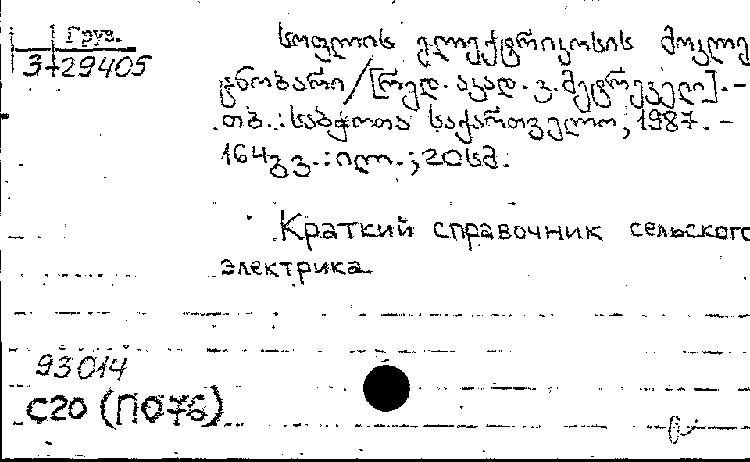 Груз.
3-29405
სოფლის ელექტრიკოსის მოკლე
ცნობარი / [რედ. აკად. ვ. მეტრეველი]. –
თბ. : საბჭოთა საქართველო, 1987. –
164 გვ. : ილ. ; 20 სმ.
Краткий справочник сельского
электрика
93014
С20 (П076)